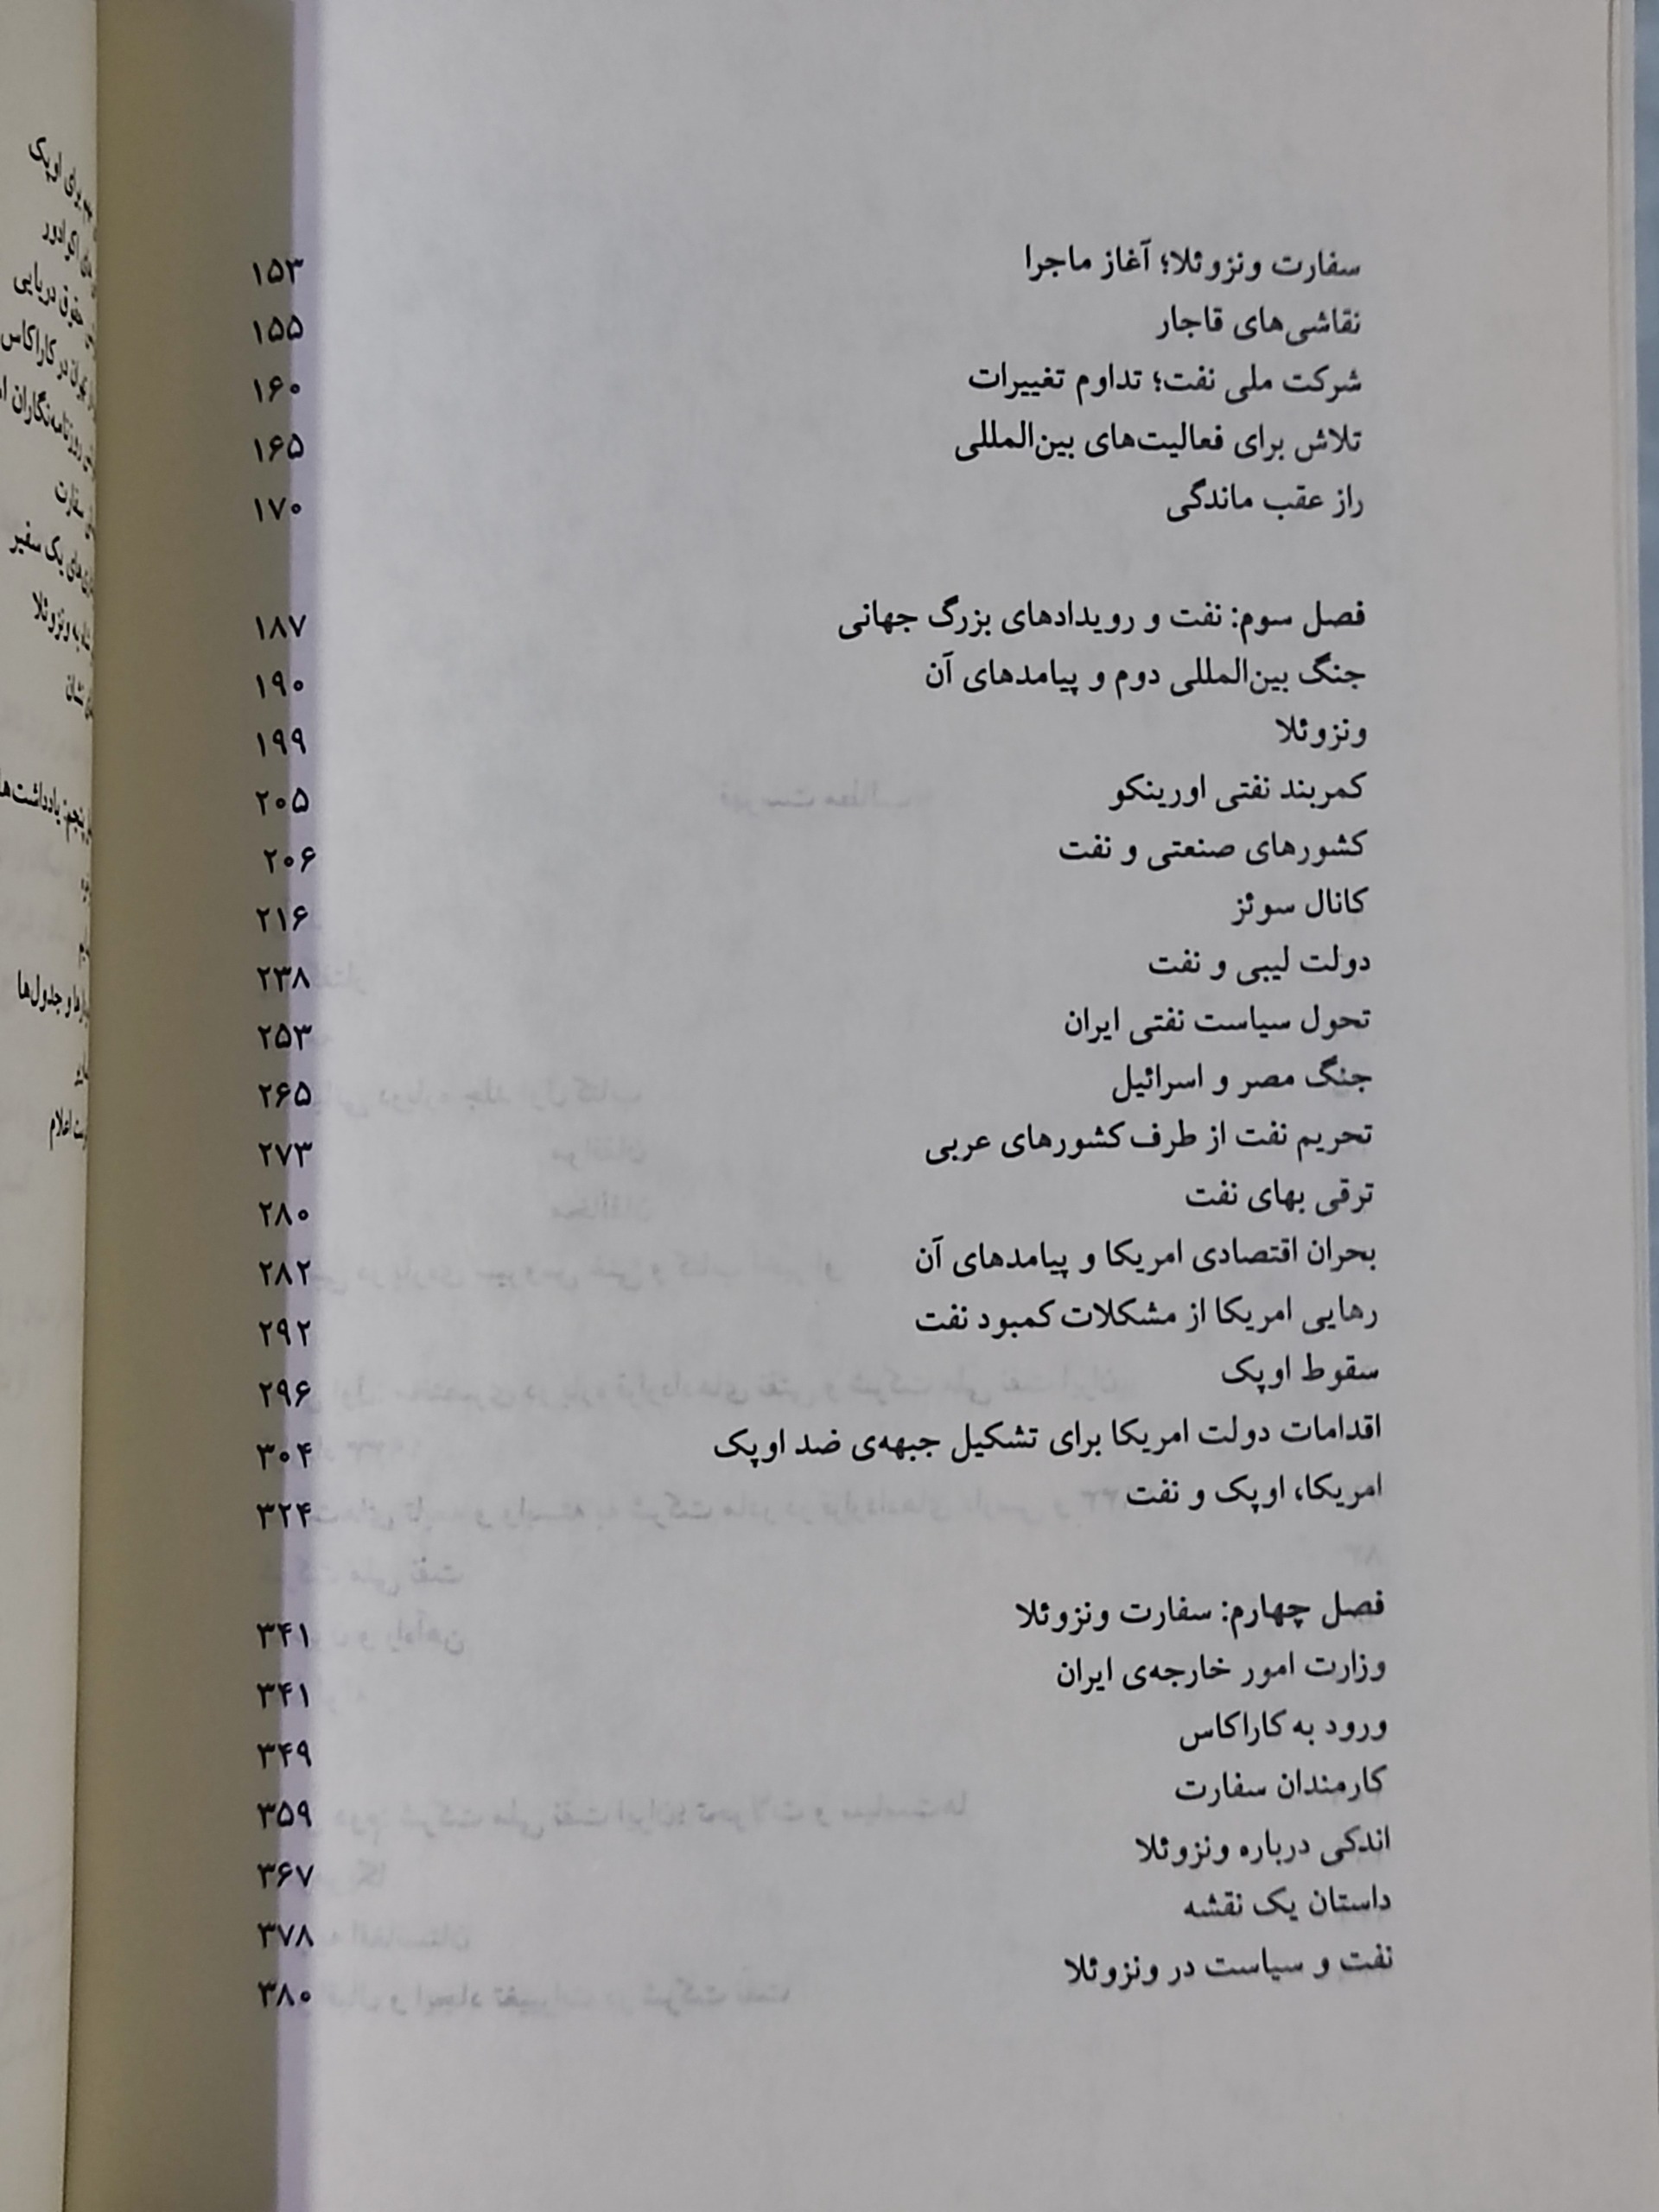 سفارت ونزوئلا؛ آغاز ماجرا ۱۵۳
نقاشی‌های قاجار ۱۵۵
شرکت ملی نفت؛ تداوم تغییرات ۱۶۰
تلاش برای فعالیت‌های بین‌المللی ۱۶۵
راز عقب ماندگی ۱۷۰
فصل سوم: نفت و رویدادهای بزرگ جهانی ۱۸۷
جنگ بین‌المللی دوم و پیامدهای آن ۱۹۰
ونزوئلا ۱۹۹
کمربند نفتی اورینکو ۲۰۵
کشورهای صنعتی و نفت ۲۰۶
کانال سوئز ۲۱۶
دولت لیبی و نفت ۲۳۸
تحول سیاست نفتی ایران ۲۵۳
جنگ مصر و اسرائیل ۲۶۵
تحریم نفت از طرف کشورهای عربی ۲۷۳
ترقی بهای نفت ۲۸۰
بحران اقتصادی امریکا و پیامدهای آن ۲۸۲
رهایی امریکا از مشکلات کمبود نفت ۲۹۲
سقوط اوپک ۲۹۶
اقدامات دولت امریکا برای تشکیل جبهه‌ی ضد اوپک ۳۰۴
امریکا، اوپک و نفت ۳۲۴
فصل چهارم: سفارت ونزوئلا ۳۴۱
وزارت امور خارجه‌ی ایران ۳۴۱
ورود به کاراکاس ۳۴۹
کارمندان سفارت ۳۵۹
اندکی درباره ونزوئلا ۳۶۷
داستان یک نقشه ۳۷۸
نفت و سیاست در ونزوئلا ۳۸۰
برای اوپک
اکوادور
حقوق دریایی
در کاراکاس
روزنامه‌نگاران
سفارت
یک سفیر
به ونزوئلا
نشان
یادداشت‌ها
و جدول‌ها
اعلام